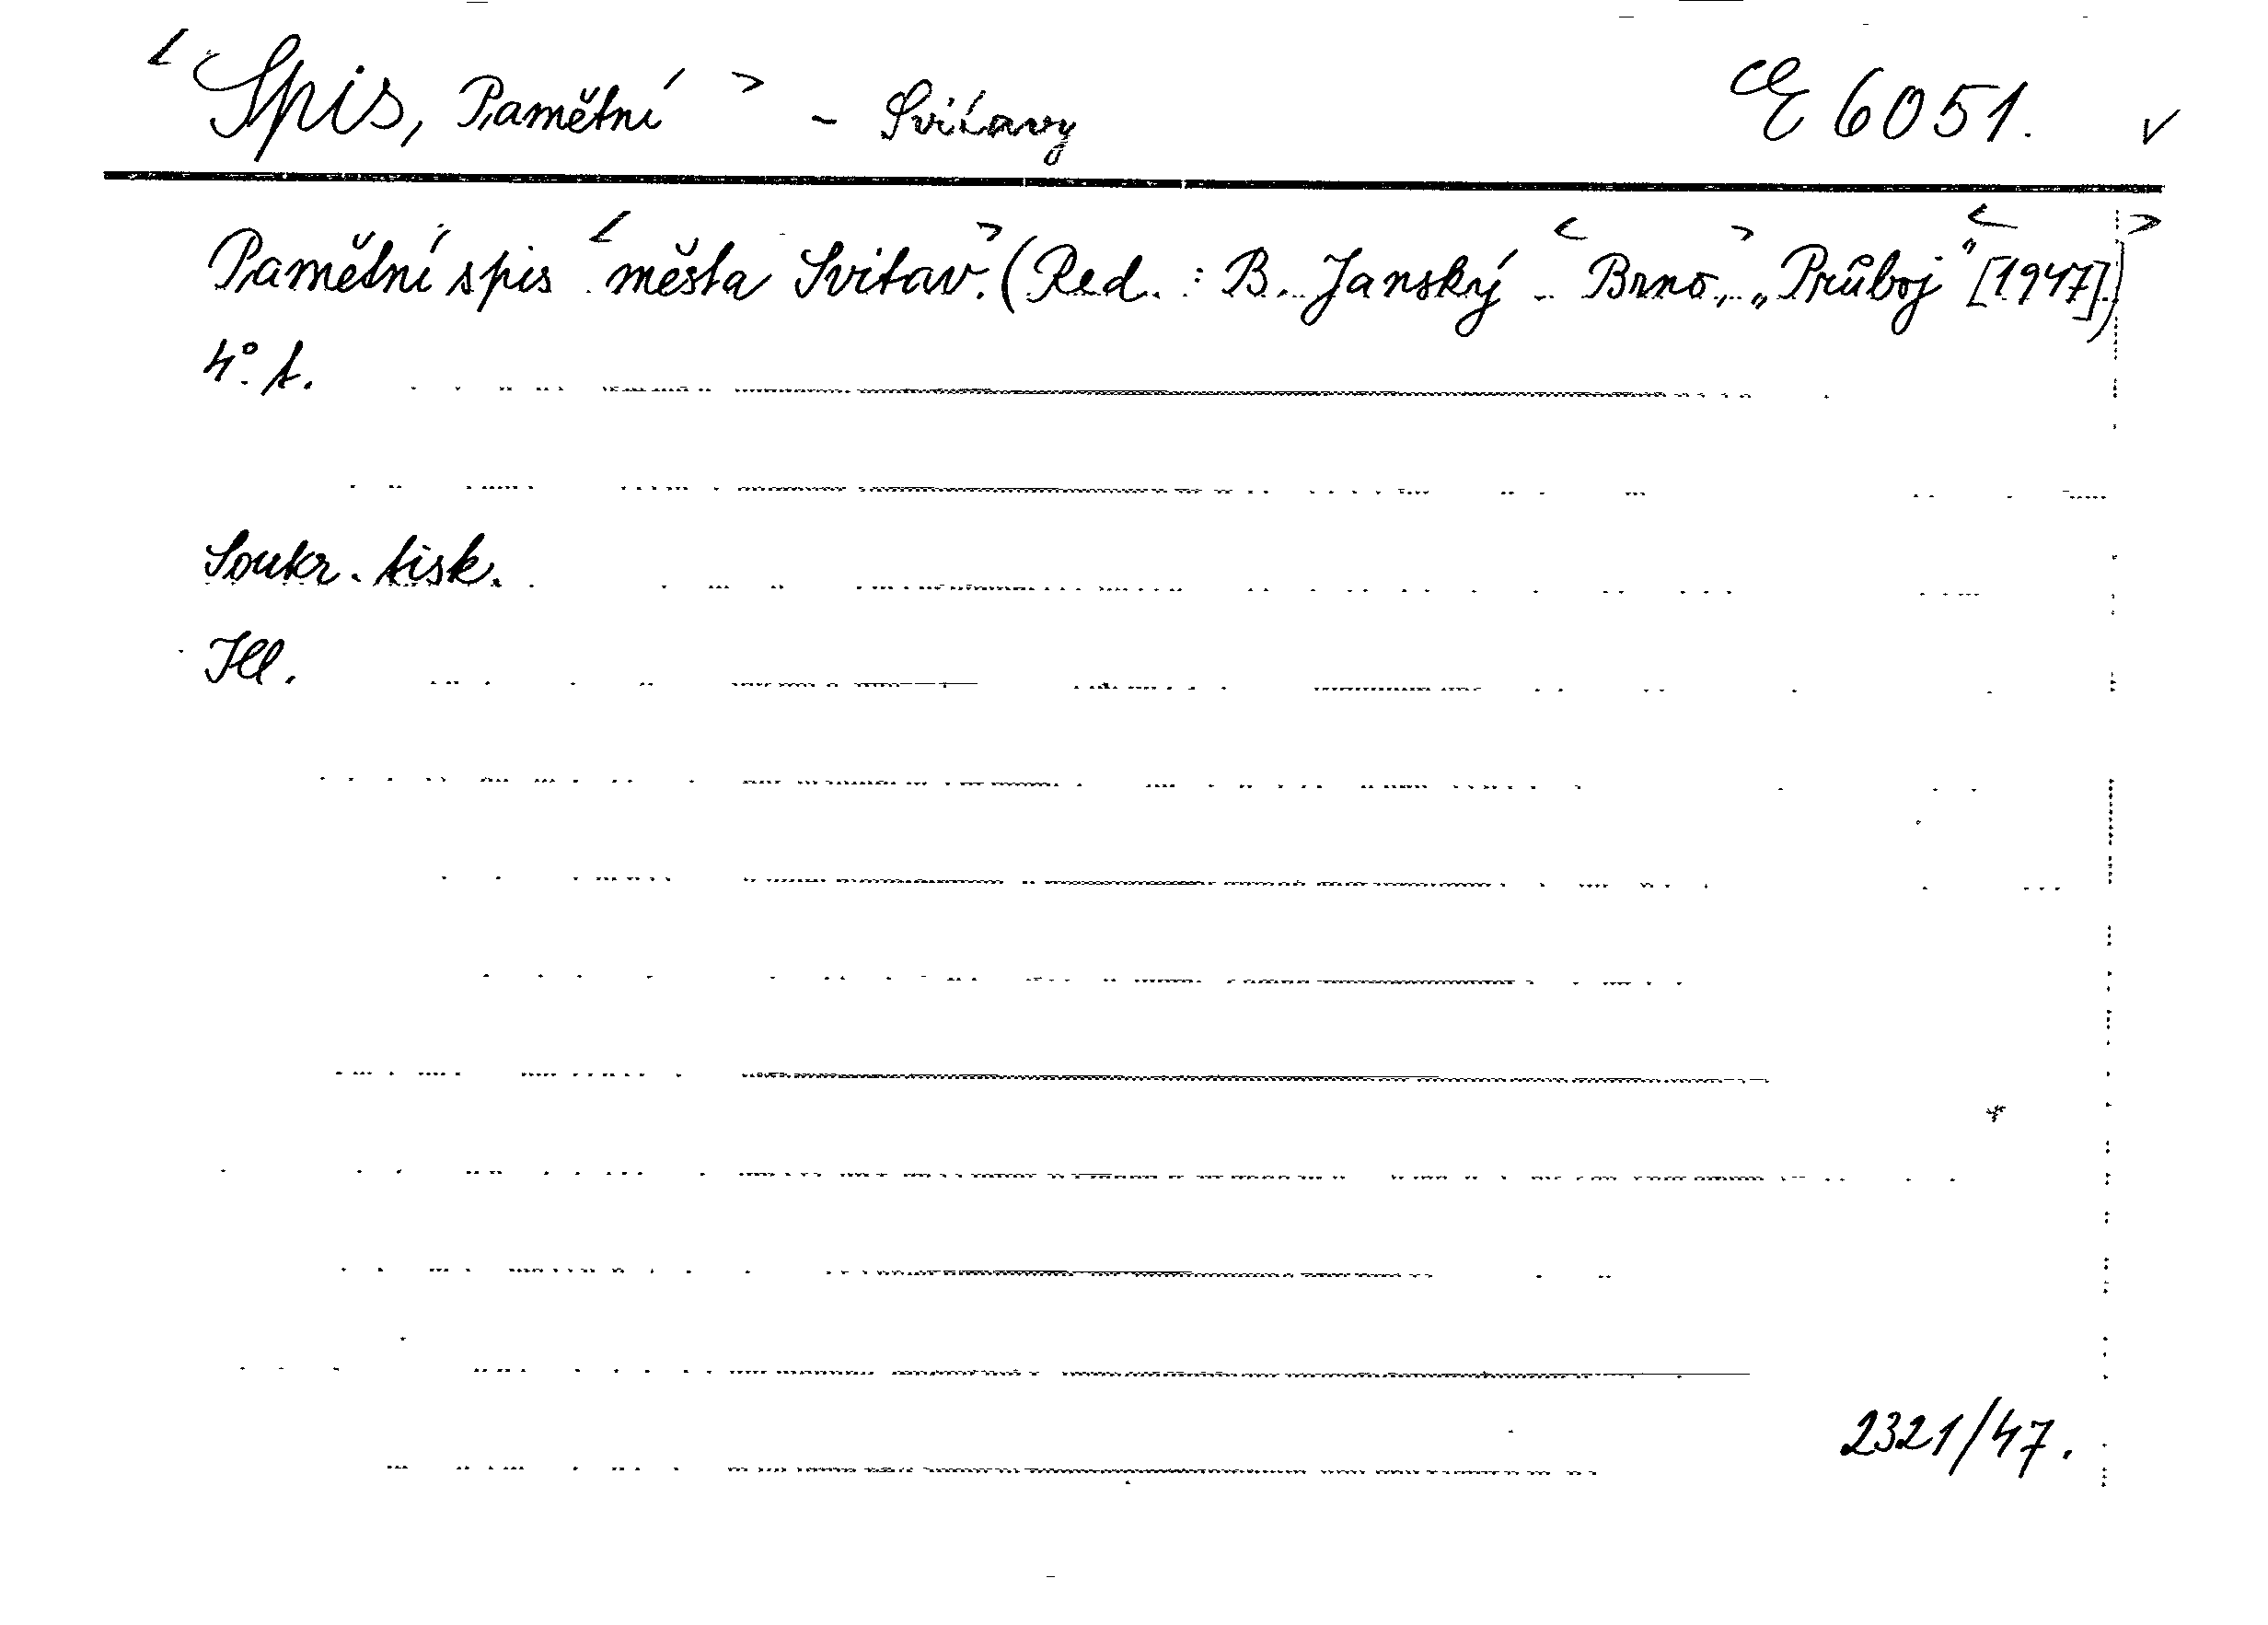 < Spis, Pamětní > - Svitavy E 6051. ✓
Pamětní spis < města Svitav.> (Red. : B. Janský - < Brno, > „Průboj" < [1947]) >
4°. t.
Soukr. tisk.
Ill.
2321/47.